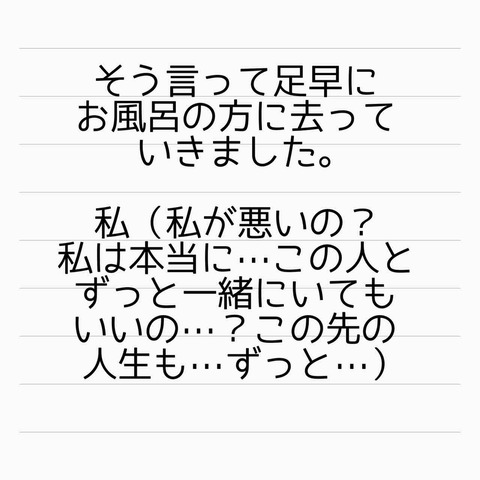 そう言って足早に
お風呂の方に去って
いきました。
私（私が悪いの？
私は本当に…この人と
ずっと一緒にいても
いいの…？この先の
人生も…ずっと…）